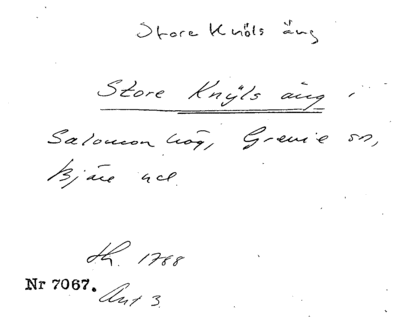 Store Knöls äng
Store Knÿls äng,
Salomonhög, Grevie sn,
Bjäre hd.
Sh. 1788
Nr 7067. Akt 3.